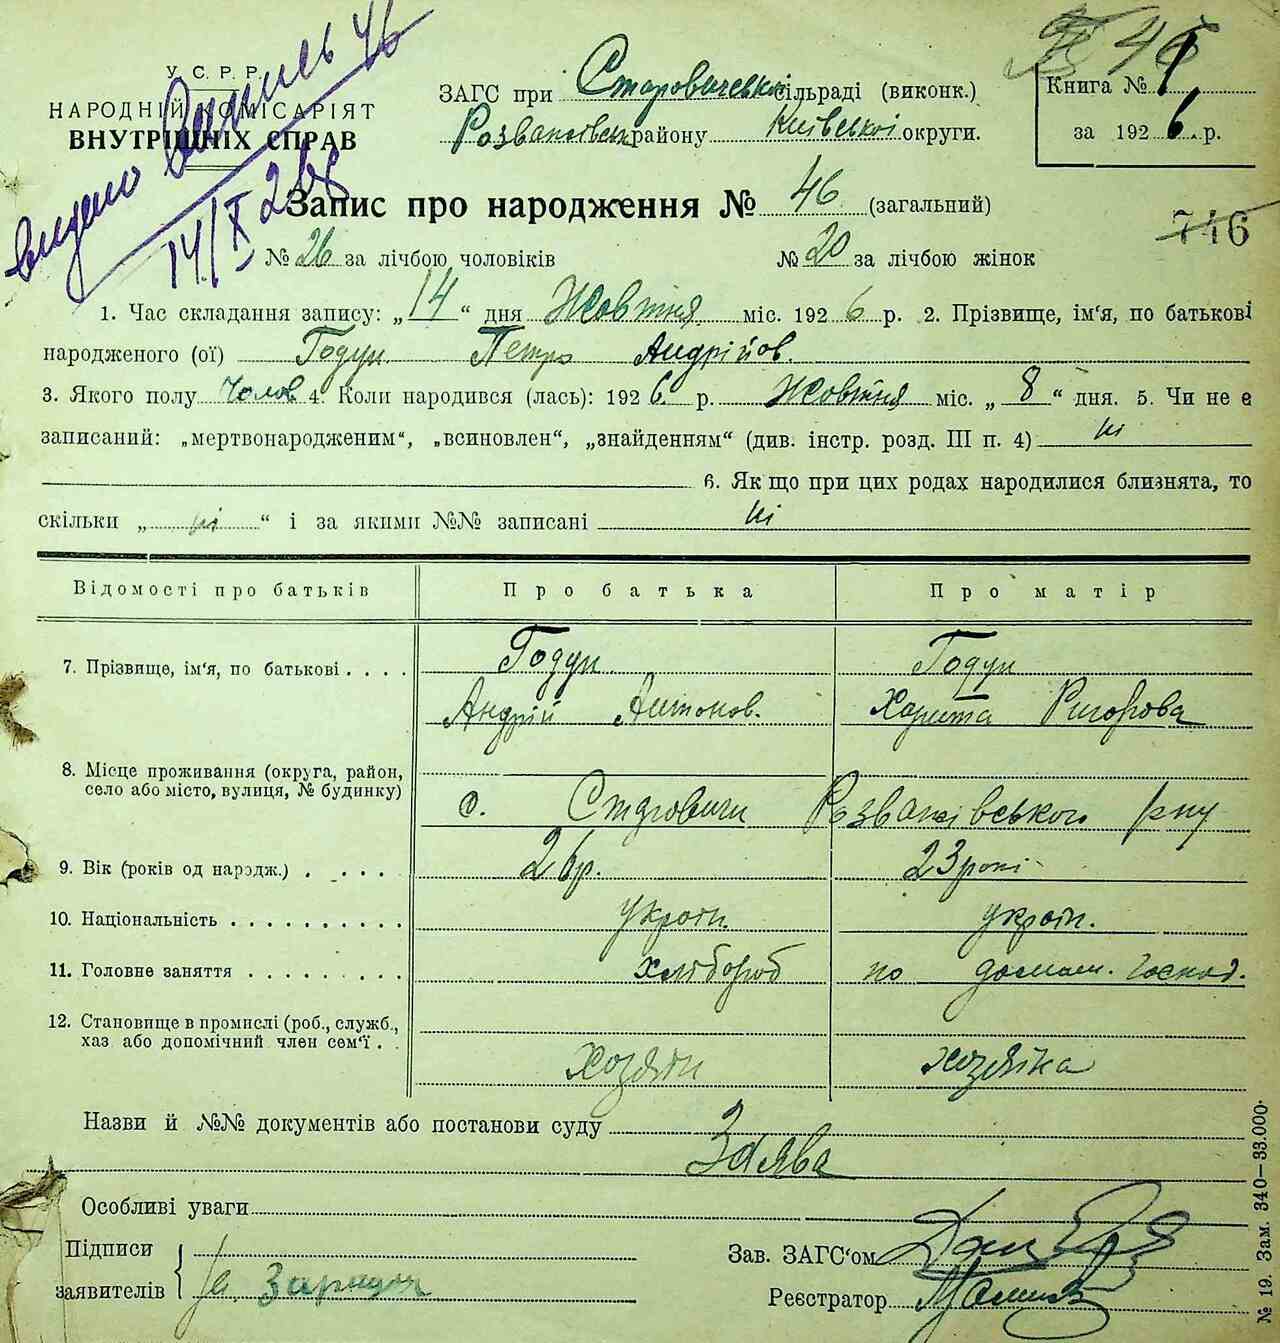 видано Витиль 46
14/X 26 р
46
У. С. Р. Р.
НАРОДНІЙ КОМІСАРІЯТ
ВНУТРІШНІХ СПРАВ
ЗАГС при Старовичеській сільраді (виконк.)
Розважівськ району Київської округи.
Книга № 1
за 1926 р.
Запис про народження № 46 (загальний)
746
№ 26 за лічбою чоловіків № 20 за лічбою жінок
1. Час складання запису: „14“ дня Жовтня міс. 1926 р. 2. Прізвище, ім'я, по батькові
народженого (ої) Годун Петро Андрійов.
3. Якого полу Чолов 4. Коли народився (лась): 1926. р. Жовтня міс. „8“ дня. 5. Чи не є
записаний: „мертвонародженим“, „всиновлен“, „знайденням“ (див. інстр. розд. III п. 4) ні
6. Як що при цих родах народилися близнята, то
скільки „ні“ і за якими №№ записані ні
Відомості про батьків Про батька Про матір
7. Прізвище, ім'я, по батькові . . . . Годун Годун
Андрій Антонов. Харита Ригорова
8. Місце проживання (округа, район,
село або місто, вулиця, № будинку) с. Старовичи Розважівського р-ну
9. Вік (років од народж.) . . . . . 26 р. 23 рокі
10. Національність . . . . . . . . . . україн. україн.
11. Головне заняття . . . . . . . . . хлібороб по домаш. господ.
12. Становище в промислі (роб., служб.,
хаз або допомічний член сем'ї . . Хозяїн хозяїка
Назви й №№ документів або постанови суду
Заява
Особливі уваги
Підписи
заявителів
Зав. ЗАГС'ом
Реєстратор
№ 19. Зам. 340—33.000.